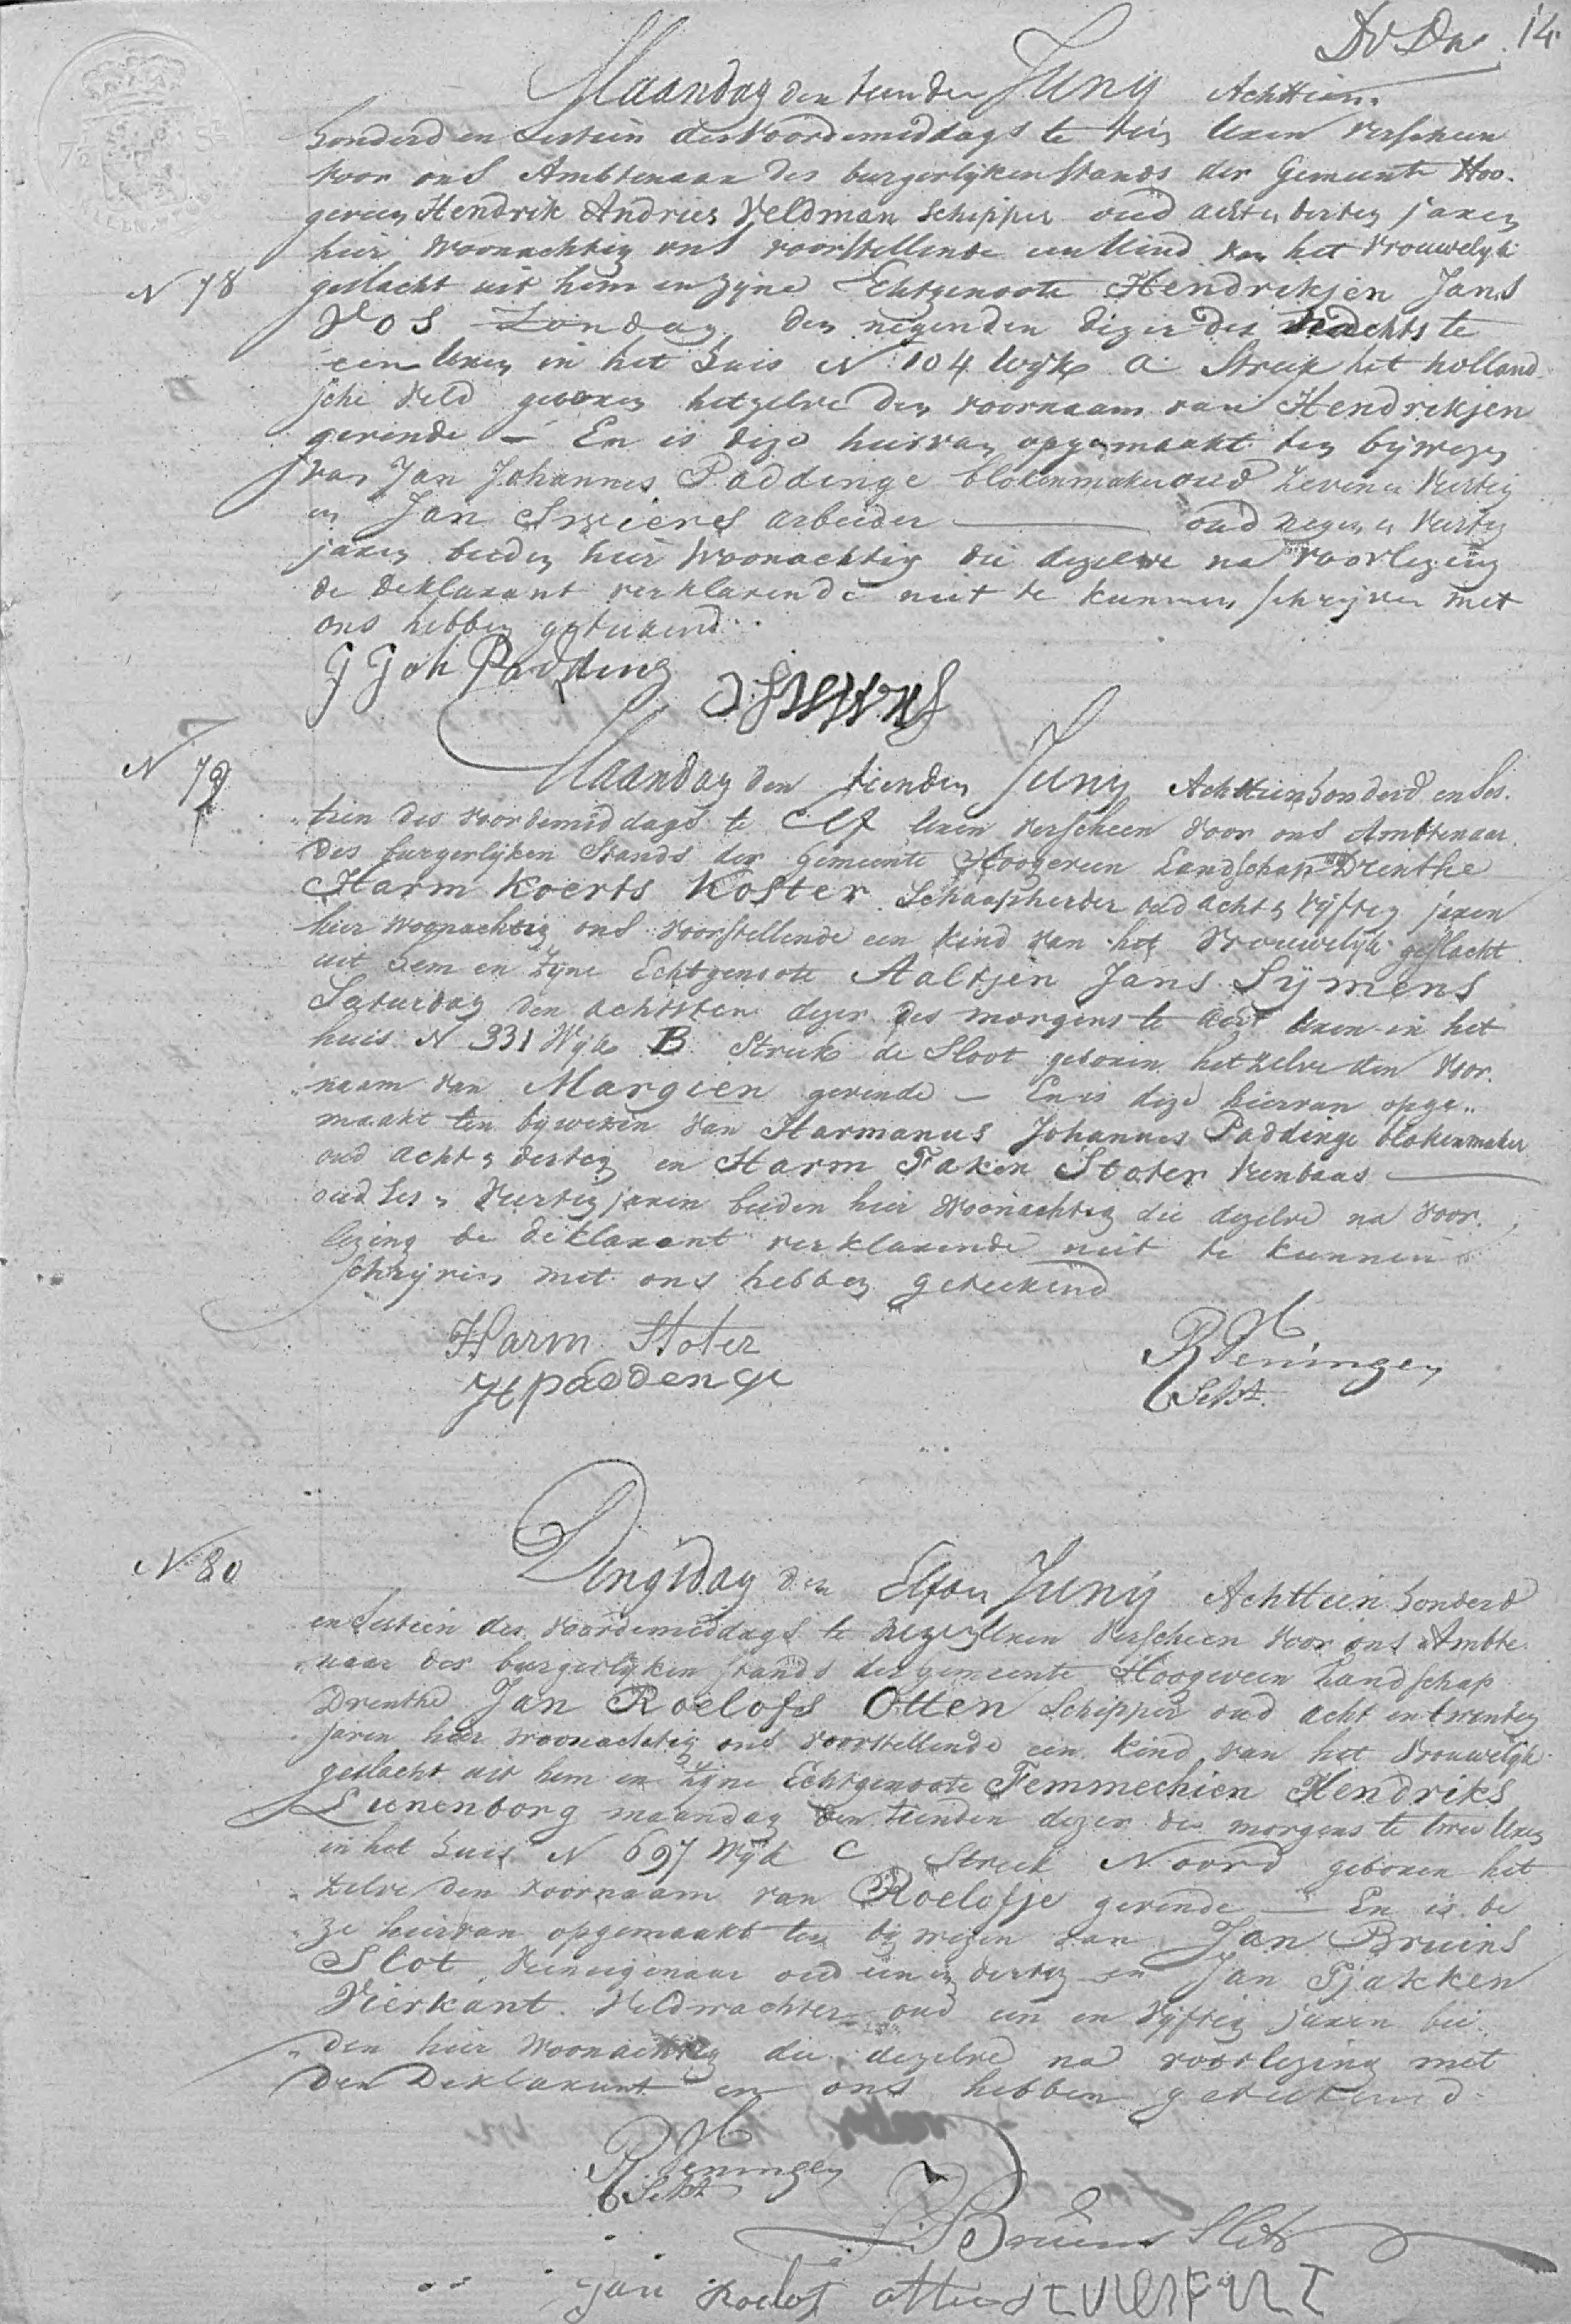 14
Maandag den tienden Juny Achttien
honderd en Sestien des Voordemiddags te tien Uren verscheen
voor ons Ambtenaar des burgerlyken Stands der Gemeente Hoo-
geveen Hendrik Andries Veldman Schipper oud acht en dertig jaren
hier Woonachtig ons voorstellende een Kind van het Vrouwelyk
N 78
geslacht uit hem en zyne Echtgenoote Hendrikjen Jans
Vos Zondag den negenden dezer des nachts te
een Uren in het huis N 104 Wyk A Streek het holland-
sche Veld geboren hetzelve den voornaam van Hendrikjen
gevende — En is deze hiervan opgemaakt ten bywezen
van Jan Johannes Paddinge blokenmaker oud Zeven en Veertig
en Jan Swiers arbeider oud negen en Veertig
jaren beiden hier Woonachtig die dezelve na voorlezing
de deklarant verklarende niet te kunnen schryven met
ons hebben getekend
J Joh Padding
N 79
Maandag den tienden Juny Achttienhonderd en Ses-
tien des Voordemiddags te Elf Uren verscheen voor ons Ambtenaar
des burgerlyken Stands der Gemeente Hoogeveen Landschap Drenthe
Harm Koerts Koster Schaapherder oud acht en Vyftig jaren
hier woonachtig ons voorstellende een kind van het Vrouwelyk geslacht
uit hem en Zyne Echtgenoote Aaltjen Jans Symens
Saturdag den achtsten dezer des morgens te acht Uren in het
huis N 331 Wyk B Streek de Sloot geboren hetzelve den Voor-
naam van Margien gevende — En is deze hiervan opge-
maakt ten bywezen van Harmanus Johannes Paddinge blokenmaker
oud acht en dertig en Harm Faken Stoter Veenbaas
oud Ses en Veertig jaren beiden hier Woonachtig die dezelve na Voor-
lezing de deklarant verklarende niet te kunnen
schryven met ons hebben geteekend
Harm Stoter
H paddenge
Sekt.
N 80
Dingsdag den Elfden Juny Achttien honderd
en Sestien des Voordemiddags te negen Uren Verscheen voor ons Ambte-
naar des burgerlyken stands der gemeente Hoogeveen Landschap
Drenthe Jan Roelofs Otten Schipper oud acht en twentig
jaren hier woonachtig ons voorstellende een kind van het Vrouwelyk
geslacht uit hem en Zyne Echtgenoote Femmechien Hendriks
Lunenborg maandag den tienden dezer des morgens te twee Uren
in het huis N 697 Wyk C Streek Noord geboren het-
zelve den voornaam van Roelofje gevende — En is de-
ze hiervan opgemaakt ten bywezen van Jan Bruins
Slot Veeneigenaar oud een en dertig en Jan Tjakken
Vierkant Veldwachter oud een en Vyftig jaren bei-
den hier Woonachtig die dezelve na voorlezing met
den Deklarant en ons hebben getekend
Sekt
J Bruins Slot
Jan Roelof Otten J T Vierkant